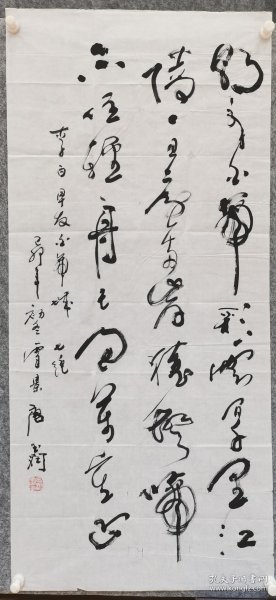 朝辞白帝彩雲间千里江
陵一日還两岸猿聲啼
不住輕舟已過萬重山
李白早发白帝城 七绝
己卯年初冬
孔夫子旧书网